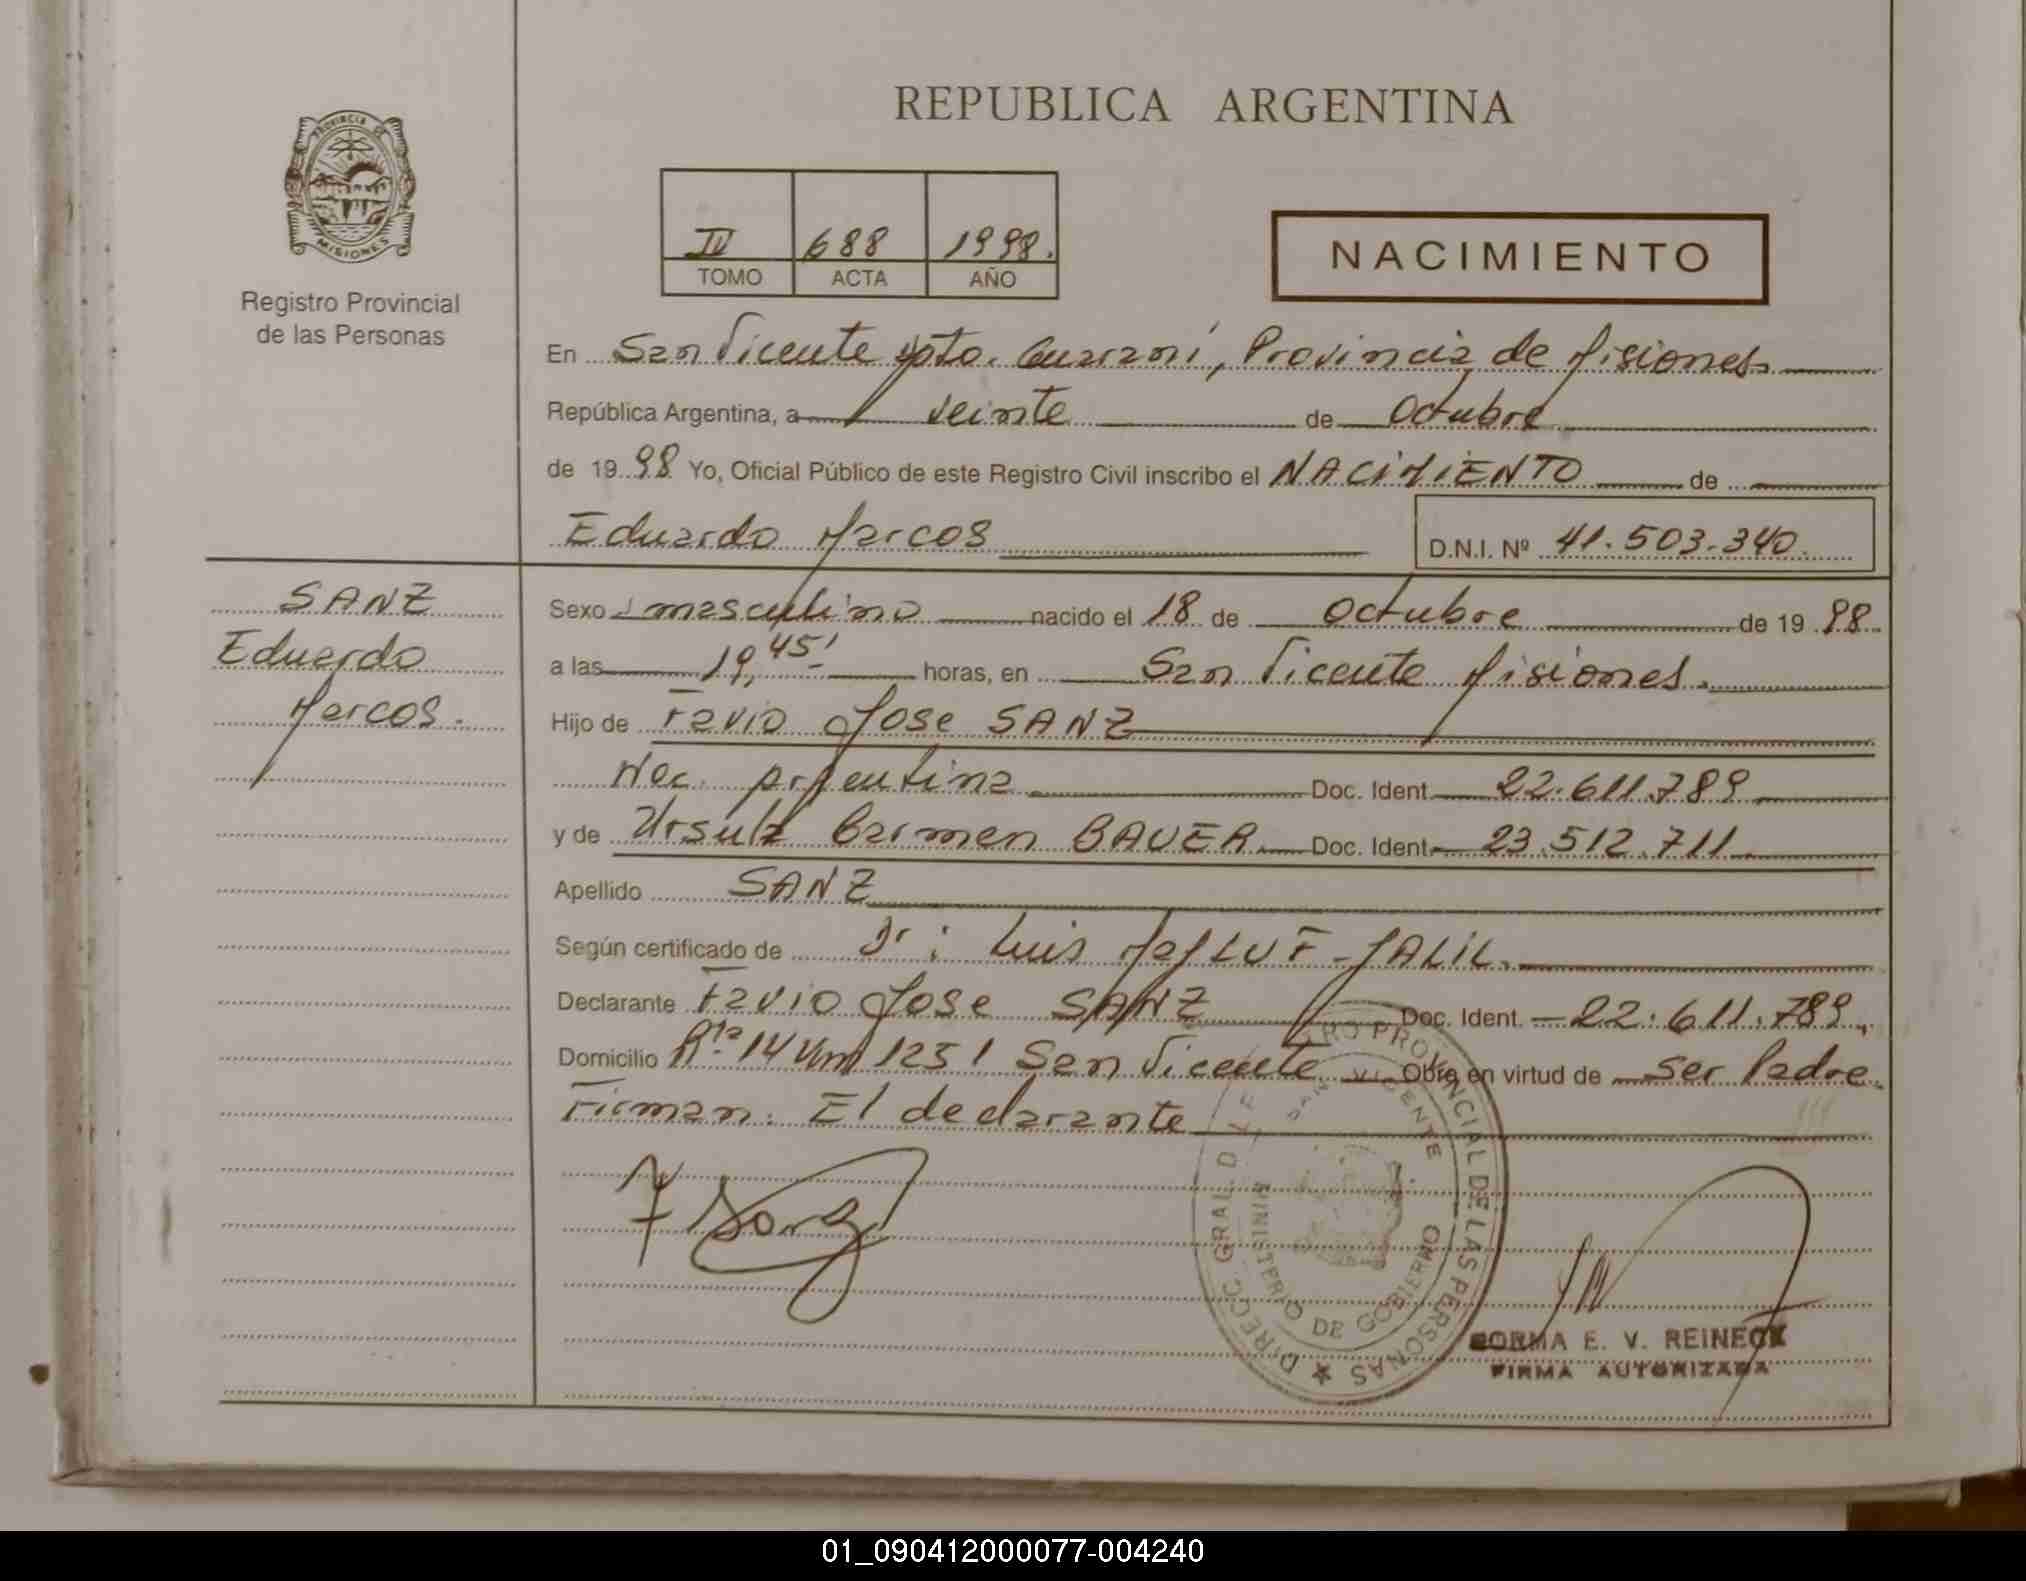 REPUBLICA ARGENTINA
PROVINCIA DE
MISIONES
Registro Provincial
de las Personas
IV 688 1998.
TOMO ACTA AÑO
NACIMIENTO
En San Vicente Dpto. Guaraní, Provincia de Misiones
República Argentina, a veinte de Octubre
de 1998 Yo, Oficial Público de este Registro Civil inscribo el NACIMIENTO de
Eduardo Marcos D.N.I. Nº 41.503.340.
SANZ
Eduardo
Marcos.
Sexo masculino nacido el 18 de Octubre de 1998.
a las 19,45' horas, en San Vicente Misiones.
Hijo de Favio Jose SANZ
Nac. Argentina Doc. Ident. 22.611.789
y de Ursula Carmen BAUER Doc. Ident. 23.512.711
Apellido SANZ
Según certificado de Dr: Luis JALIL.
Declarante Favio Jose SANZ Doc. Ident. 22.611.789,
Domicilio Rta 14 Km 1251 San Vicente Obra en virtud de ser Padre.
Firman: El declarante
F Sanz
DIRECC. GRAL. DEL REGISTRO PROVINCIAL DE LAS PERSONAS
SAN VICENTE
MINISTERIO DE GOBIERNO
NORMA E. V. REINECK
FIRMA AUTORIZADA
01_090412000077-004240